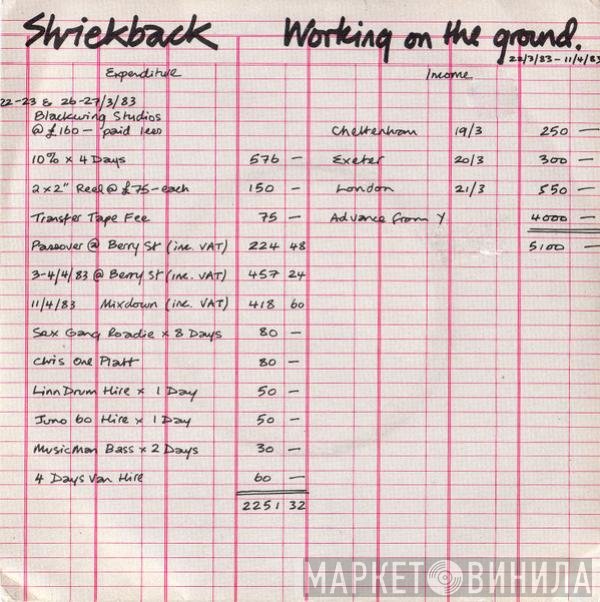 Shriekback Working on the ground.
22/3/83 - 11/4/83
Expenditure Income
22-23 & 26-27/3/83
Blackwing Studios
@ £160 - paid less Cheltenham 19/3 250 —
10% x 4 Days 576 — Exeter 20/3 300 —
2 x 2" Reel @ £75 - each 150 — London 21/3 550 —
Transfer Tape Fee 75 — Advance from Y 4000 —
Passover @ Berry St (inc. VAT) 224 48 5100 —
3-4/4/83 @ Berry St (inc. VAT) 457 24
11/4/83 Mixdown (inc. VAT) 418 60
Sex Gang Roadie x 8 Days 80 —
Chris One Platt 80 —
Linn Drum Hire x 1 Day 50 —
Juno 60 Hire x 1 Day 50 —
MusicMan Bass x 2 Days 30 —
4 Days Van Hire 60 —
2251 32
МАРКЕТ ВИНИЛА